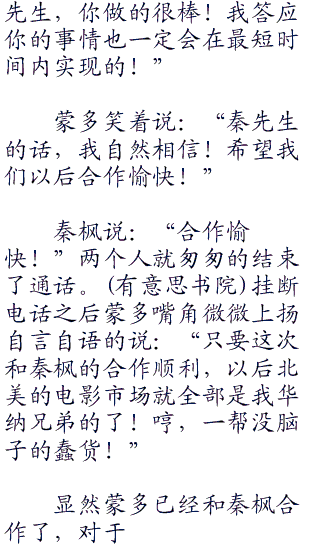 先生，你做的很棒！我答应
你的事情也一定会在最短时
间内实现的！”
蒙多笑着说：“秦先生
的话，我自然相信！希望我
们以后合作愉快！”
秦枫说：“合作愉
快！”两个人就匆匆的结束
了通话。(有意思书院)挂断
电话之后蒙多嘴角微微上扬
自言自语的说：“只要这次
和秦枫的合作顺利，以后北
美的电影市场就全部是我华
纳兄弟的了！哼，一帮没脑
子的蠢货！”
显然蒙多已经和秦枫合
作了，对于